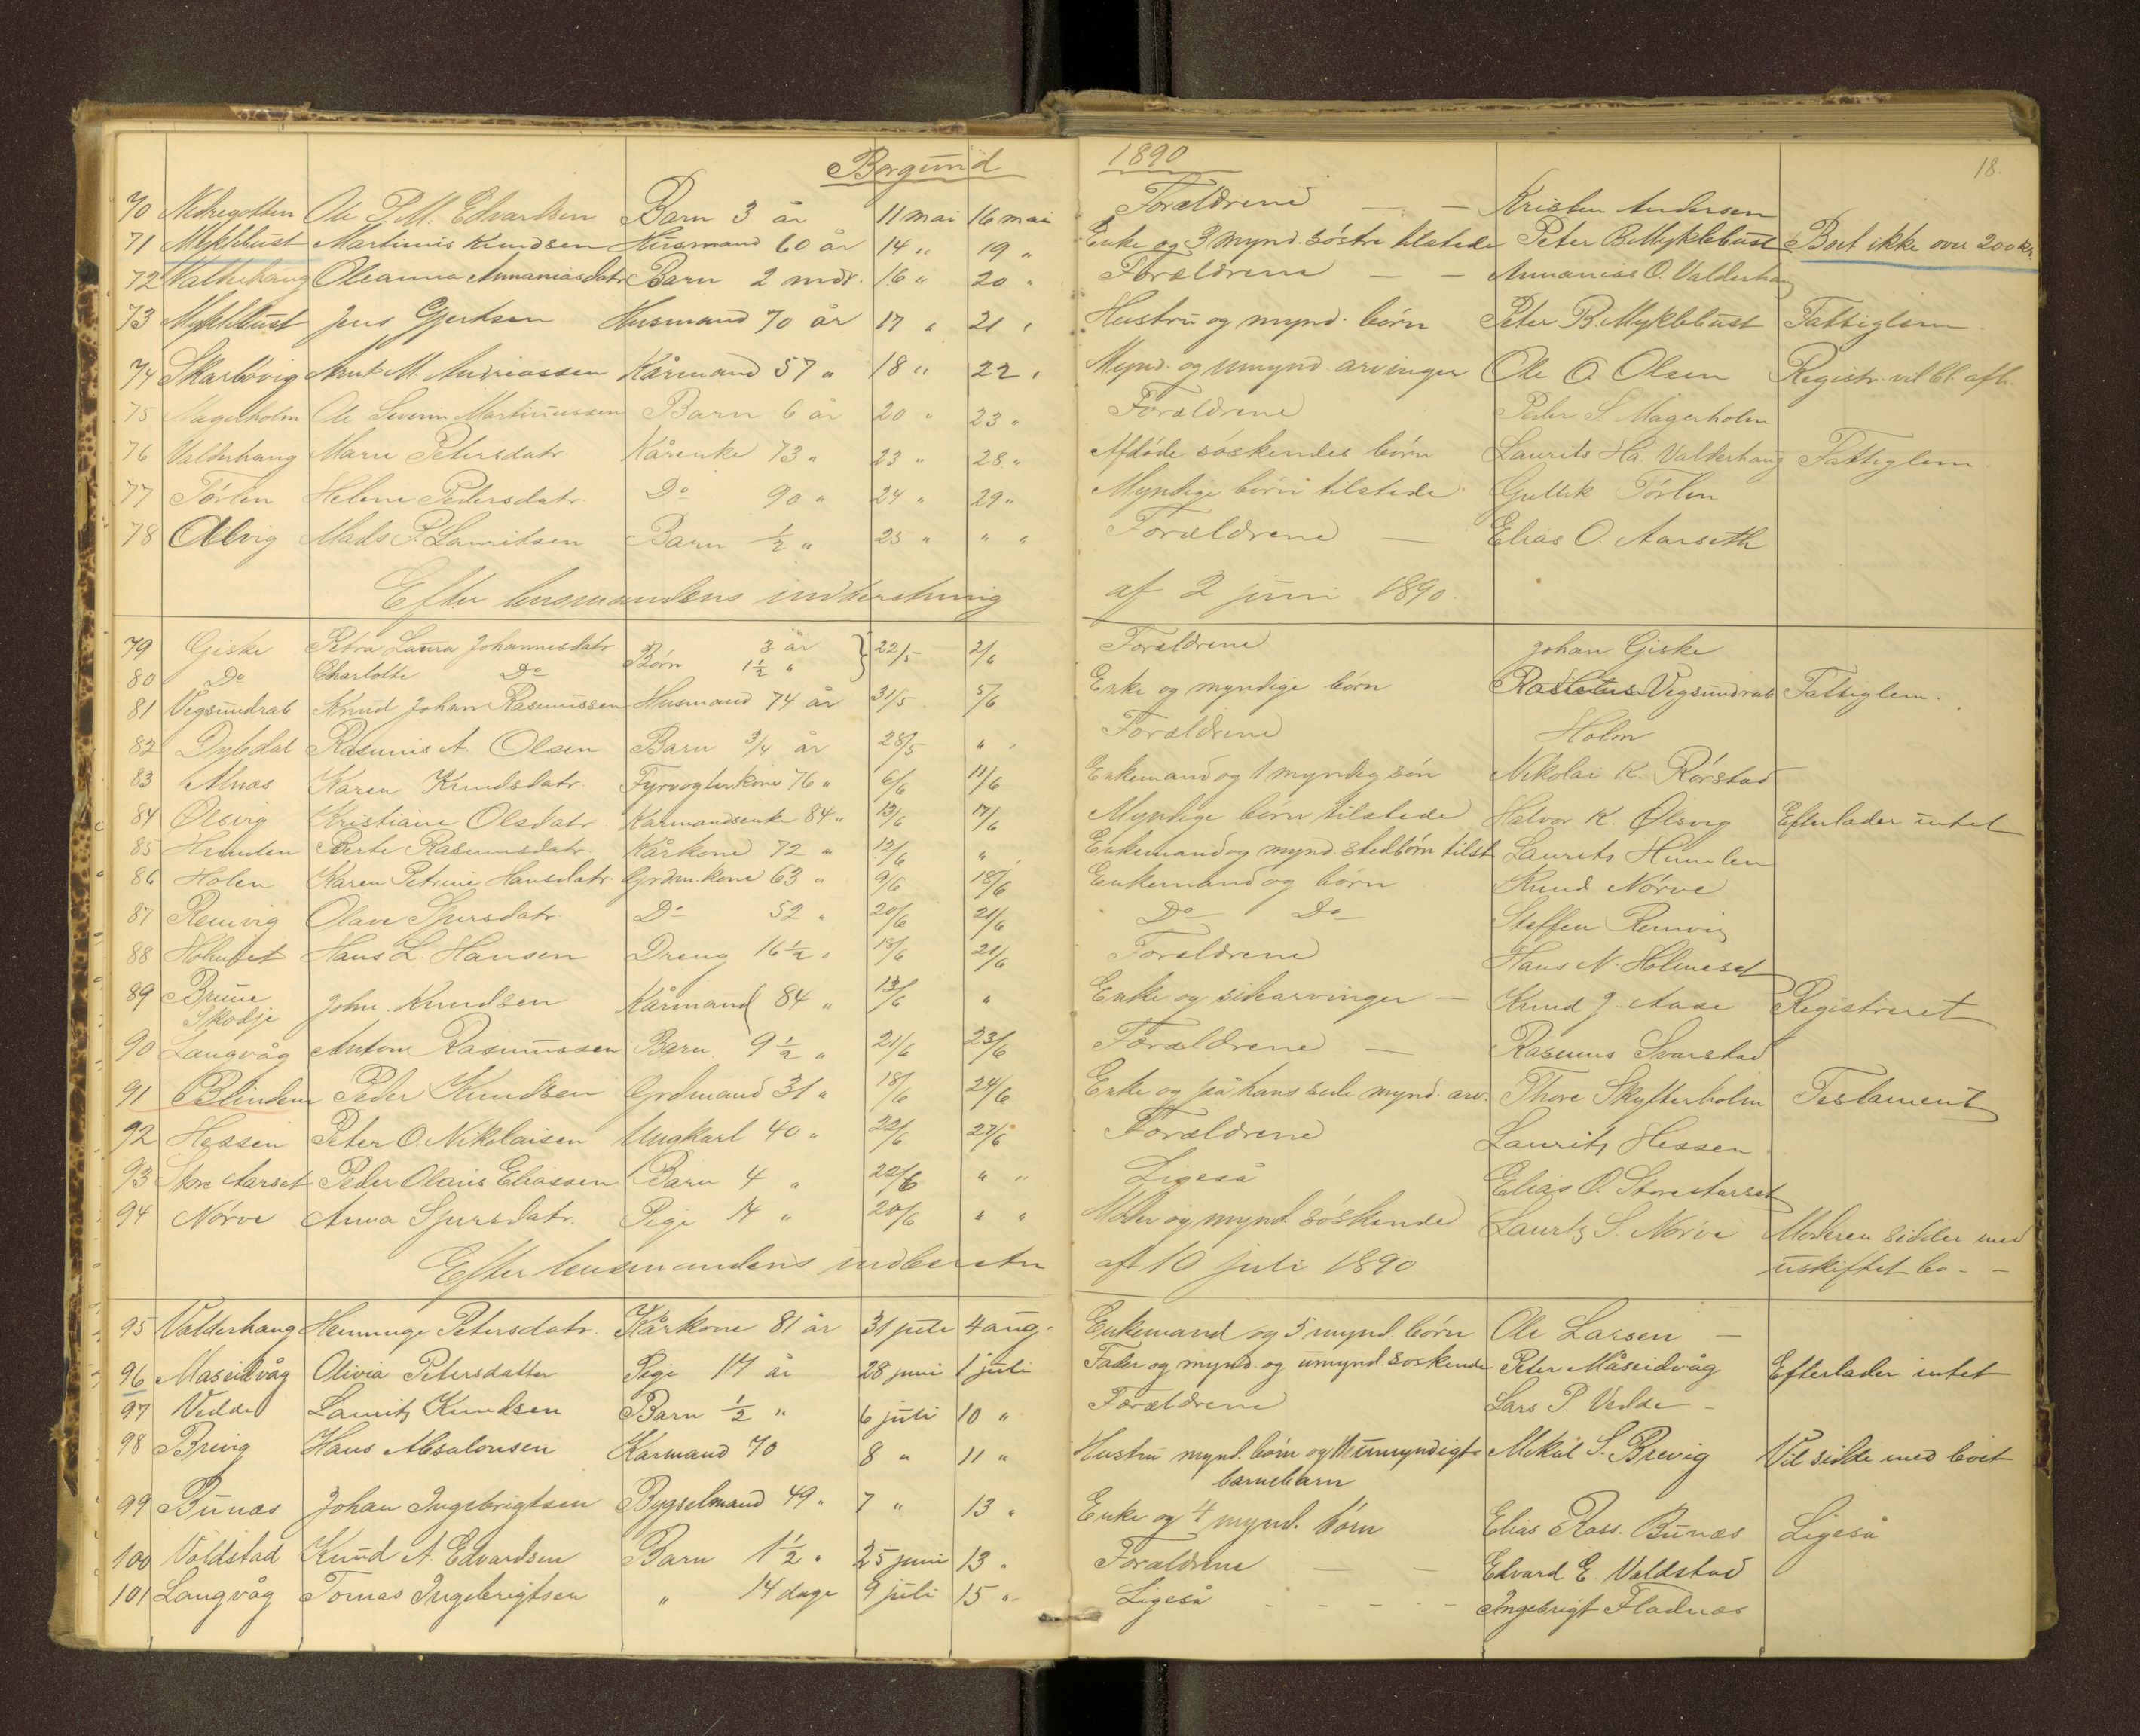 Borgund 1890 18.
70 Nedregotten Ole P. M. Edvardsen Barn 3 år 11 mai 16 mai Forældrene — — Kristen Andersen
71 Myklebust Martinus Knudsen Husmand 60 år 14 " 19 " Enke og 3 mynd. söstre tilstede Peter B. Myklebust Boet ikke over 200 kr.
72 Valderhaug Oleanna Annaniasdatr Barn 2 mdr. 16 " 20 " Forældrene — — Annanias O. Valderhaug
73 Myklebust Jens Gjertsen Husmand 70 år 17 " 21 " Hustru og mynd. börn Peter B. Myklebust Fattiglem
74 Skarbövig Knut M. Andreassen Kårmand 57 " 18 " 22 " Mynd. og umynd. arvinger Ole O. Olsen Registr. vil bl. afh.
75 Magerholm Ole Severin Martinussen Barn 6 år 20 " 23 " Forældrene Peder S. Magerholm
76 Valderhaug Marie Petersdatr. Kårenke 73 " 23 " 28 " Afdöde söskendes börn Laurits Ha. Valderhaug Fattiglem
77 Törlen Helene Pedersdatr. Do 90 " 24 " 29 " Myndige börn tilstede Gullik Törlen
78 Alvig Mads P. Lauritsen Barn ½ " 25 " " " Forældrene — Elias O. Aarseth
Efter lensmandens indberetning af 2 juni 1890.
79 Giske Petra Laura Johannesdatr Börn 3 år } 22/5 2/6 Forældrene Johan Giske
80 Do Charlotte Do 1½ "
81 Vegsundrab Knud Johan Rasmussen Husmand 74 år 31/5 5/6 Enke og myndige börn Vegsundrab Fattiglem.
82 Dybdal Rasmus A. Olsen Barn ¾ år 28/5 " " Forældrene Holm
83 Alnæs Karen Knudsdatr. Fyrvogterkone 76 " 6/6 11/6 Enkemand og 1 myndig sön Nikolai K. Rörstad
84 Ølsvig Kristiane Olsdatr. Kårmandsenke 84 " 13/6 17/6 Myndige börn tilstede Halvor K. Ølsvig Efterlader intet
85 Humlen Berte Rasmusdatr. Kårkone 72 " 12/6 " " Enkemand og mynd. stedbörn tilst. Laurits Humlen
86 Holen Karen Petrine Hansdatr. Grdm.kone 63 " 9/6 18/6 Enkemand og börn Knud Nörve
87 Remvig Olave Sjursdatr. Do 52 " 20/6 21/6 Do Do Steffen Remvig
88 Holmeset Hans L. Hansen Dreng 16½ " 18/6 21/6 Forældrene Hans N. Holmeset
89 Brune Skodje John. Knudsen Kårmand 84 " 13/6 " Enke og sidearvinger — Knud J. Aase Registreret
90 Langvåg Antone Rasmussen Barn 9½ " 21/6 23/6 Forældrene — Rasmus Svarstad
91 Blindem Peder Knudsen Grdmand 31 " 18/6 24/6 Enke og på hans side mynd. arv. Thore Skytterholm Testament
92 Hessen Peter O. Nikolaisen Ungkarl 40 " 22/6 27/6 Forældrene Laurits Hessen
93 Store Aarset Peder Olaus Eliassen Barn 4 " 22/6 " " Ligeså Elias O. Store Aarset
94 Nörve Anna Sjursdatr. Pige 14 " 20/6 " " Moder og mynd. söskende Laurtz S. Nörve Moderen sidder med
uskiftet bo - -
Efter lensmandens indberetn af 10 juli 1890
95 Valderhaug Hemmnge Petersdatr. Kårkone 81 år 31 juli 4 aug. Enkemand og 5 mynd. börn Ole Larsen —
96 Maseidvåg Olivia Petersdatter Pige 17 år 28 juni 1 juli Fader og mynd. og umynd. soskende Peter Måseidvåg Efterlader intet
97 Vedde Lauritz Knudsen Barn ½ " 6 juli 10 " Forældrene Lars P. Vedde -
98 Brevig Hans Absalonsen Karmand 70 8 " 11 " Hustru mynd. börn og umyndigt Mikal S. Brevig Vil sidde med boet
barnebarn
99 Bunæs Johan Ingebrigtsen Bygselmand 49 " 7 " 13 " Enke og 4 mynd. börn Elias Rass. Bunæs Ligeså
100 Valdstad Knud A. Edvardsen Barn 1½ " 25 juni 13 " Forældrene — — Edvard E. Valdstad
101 Langvåg Tomas Ingebrigtsen " 14 dage 9 juli 15 " Ligeså - - - - - Ingebrigt Fladnæs